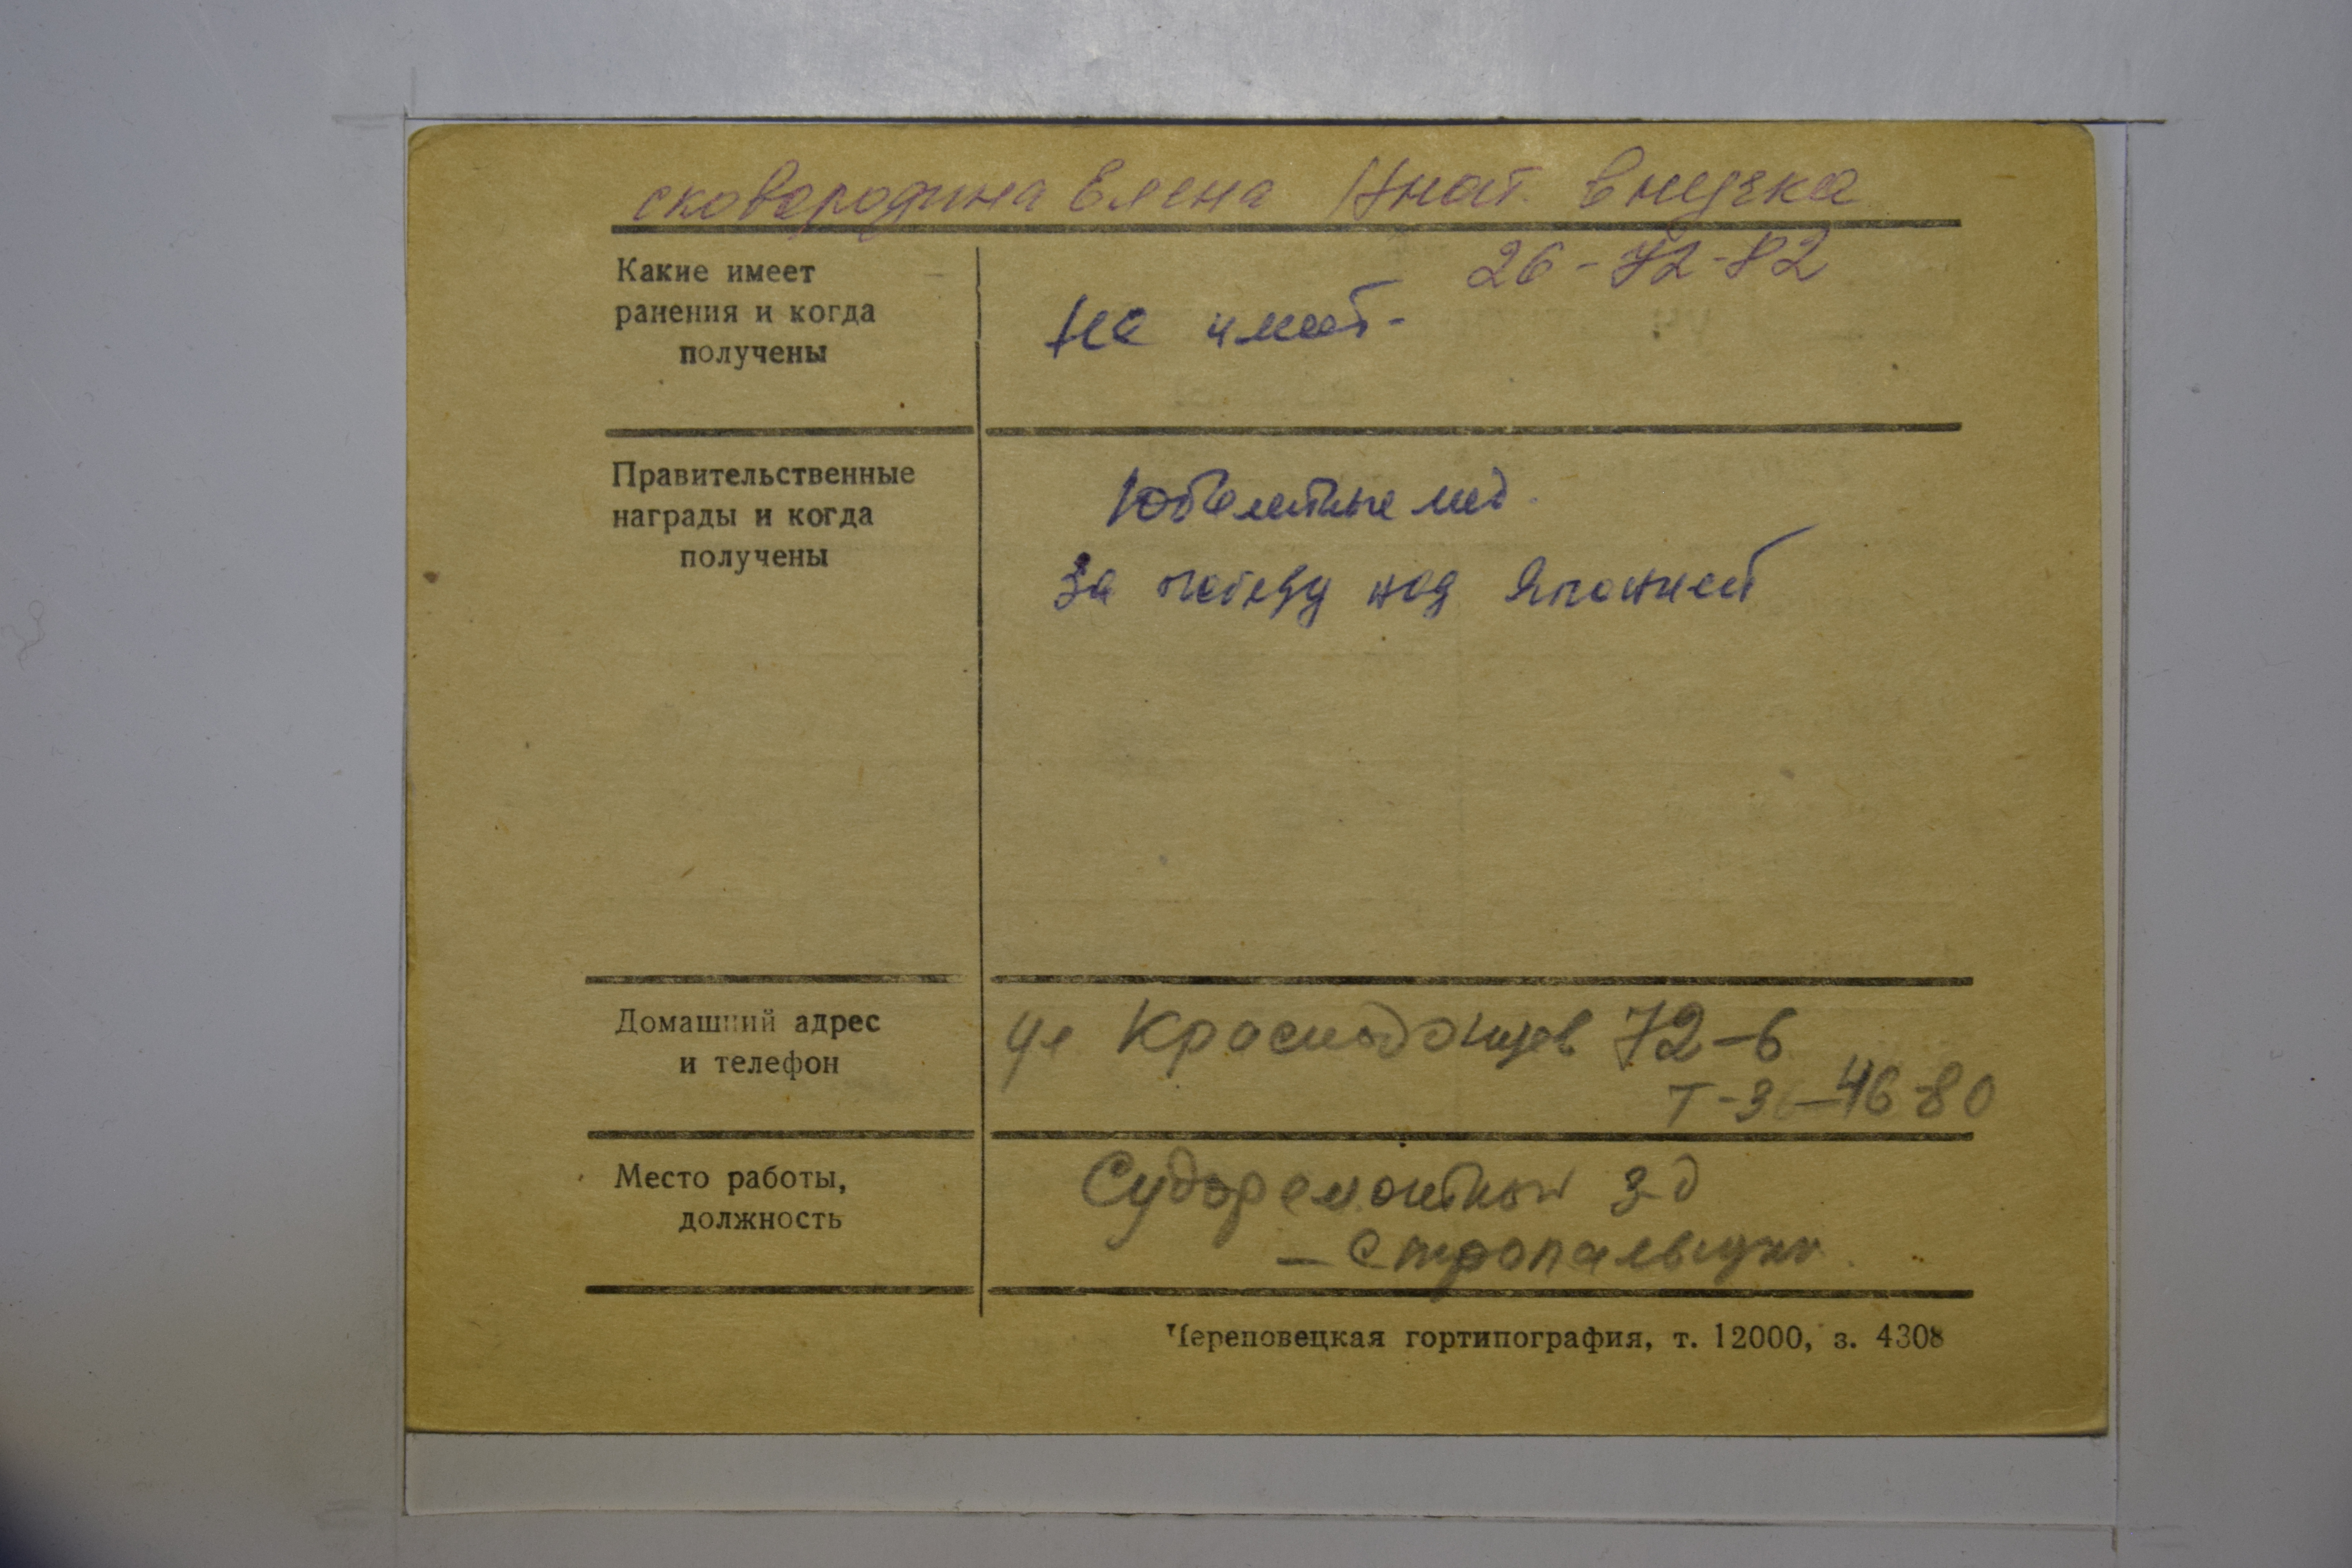 сковородина Елена Игнат. внучка
26-72-82
Какие имеет
ранения и когда
получены
не имеет-
Правительственные
награды и когда
получены
Юбилейные мед.
За победу над Японией
Домашний адрес
и телефон
ул Краснодонцев 72-6
Т-36-46-80
Место работы,
должность
Судоремонтный з-д
- Стропальщик
Череповецкая гортипография, т. 12000, з. 4308